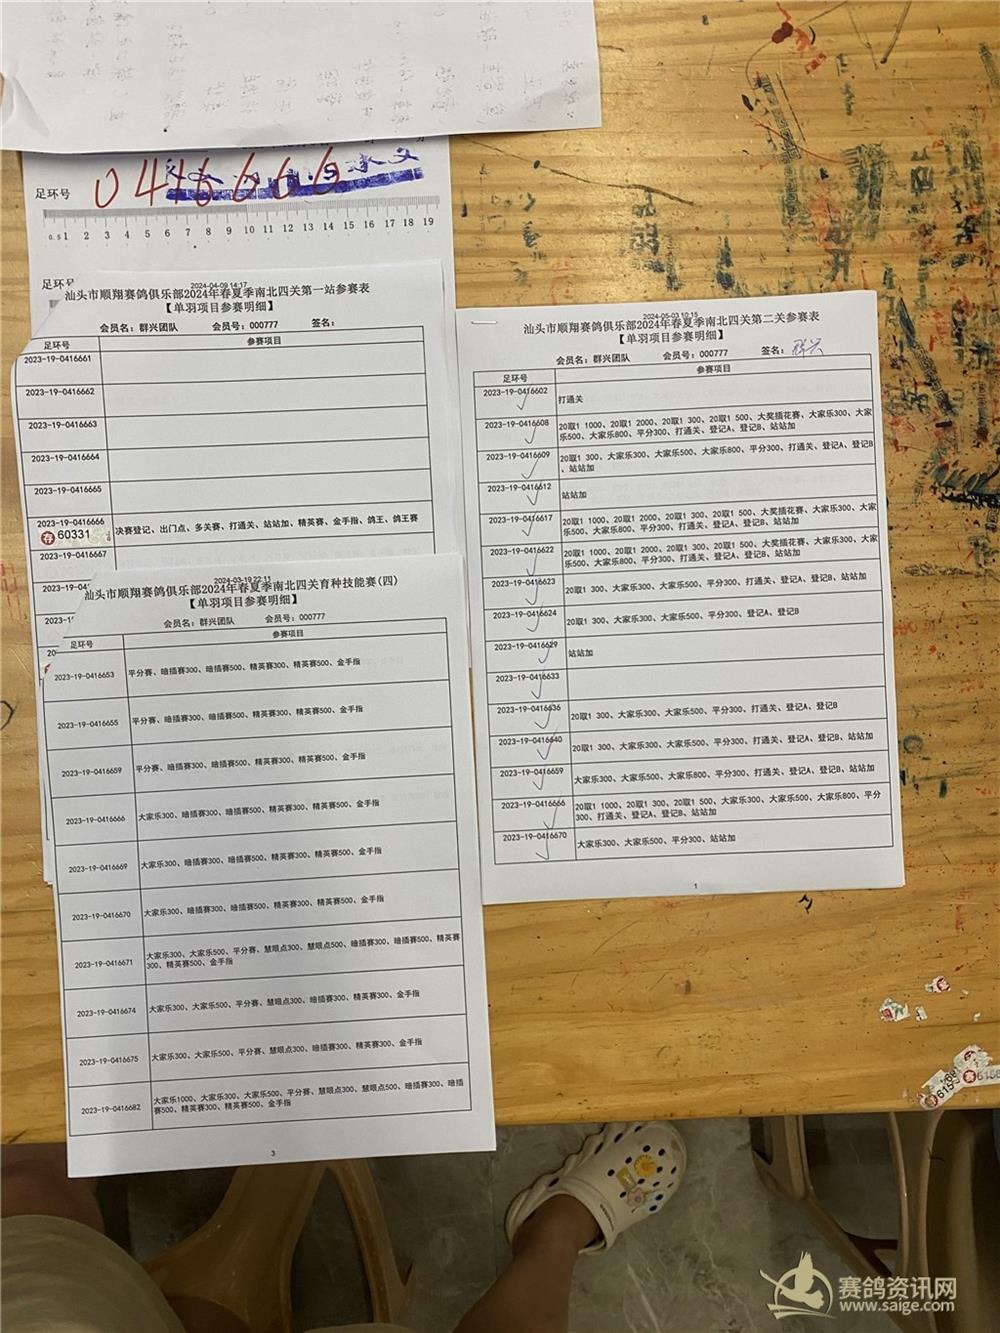 足环号
0416666
0.5 1 2 3 4 5 6 7 8 9 10 11 12 13 14 15 16 17 18 19
足环号
2024-04-09 14:17
汕头市顺翔赛鸽俱乐部2024年春夏季南北四关第一站参赛表
【单羽项目参赛明细】
会员名：群兴团队 会员号：000777 签名：
足环号 参赛项目
2023-19-0416661
2023-19-0416662
2023-19-0416663
2023-19-0416664
2023-19-0416665
2023-19-0416666 决赛登记、出门点、多关赛、打通关、站站加、精英赛、金手指、鸽王、鸽王赛
存 60331
2023-19-0416667
2024-03-19 22:11
汕头市顺翔赛鸽俱乐部2024年春夏季南北四关育种技能赛(四)
【单羽项目参赛明细】
会员名：群兴团队 会员号：000777
足环号 参赛项目
2023-19-0416653 平分赛、暗插赛300、暗插赛500、精英赛300、精英赛500、金手指
2023-19-0416655 平分赛、暗插赛300、暗插赛500、精英赛300、精英赛500、金手指
2023-19-0416659 平分赛、暗插赛300、暗插赛500、精英赛300、精英赛500、金手指
2023-19-0416666 大家乐300、暗插赛300、暗插赛500、精英赛300、精英赛500、金手指
2023-19-0416669 大家乐300、暗插赛300、暗插赛500、精英赛300、精英赛500、金手指
2023-19-0416670 大家乐300、暗插赛300、暗插赛500、精英赛300、精英赛500、金手指
2023-19-0416671 大家乐300、大家乐500、平分赛、慧眼点300、慧眼点500、暗插赛300、暗插赛500、精英赛
300、精英赛500、金手指
2023-19-0416674 大家乐300、大家乐500、平分赛、慧眼点300、暗插赛300、精英赛300、金手指
2023-19-0416675 大家乐300、大家乐500、平分赛、慧眼点300、暗插赛300、精英赛300、金手指
2023-19-0416682 大家乐1000、大家乐300、大家乐500、平分赛、慧眼点300、慧眼点500、暗插赛300、暗插
赛500、精英赛300、精英赛500、金手指
3
2024-05-03 10:15
汕头市顺翔赛鸽俱乐部2024年春夏季南北四关第二关参赛表
【单羽项目参赛明细】
会员名：群兴团队 会员号：000777 签名：群兴
足环号 参赛项目
2023-19-0416602 打通关
2023-19-0416608 20取1 1000、20取1 2000、20取1 300、20取1 500、大奖插花赛、大家乐300、大家
乐500、大家乐800、平分300、打通关、登记A、登记B、站站加
2023-19-0416609 20取1 300、大家乐300、大家乐500、大家乐800、平分300、打通关、登记A、登记B
、站站加
2023-19-0416612 站站加
2023-19-0416617 20取1 1000、20取1 2000、20取1 300、20取1 500、大奖插花赛、大家乐300、大家
乐500、大家乐800、平分300、打通关、登记A、登记B、站站加
2023-19-0416622 20取1 1000、20取1 2000、20取1 300、20取1 500、大奖插花赛、大家乐300、大家
乐500、大家乐800、平分300、打通关、登记A、登记B、站站加
2023-19-0416623 20取1 300、大家乐300、大家乐500、平分300、打通关、登记A、登记B、站站加
2023-19-0416624 20取1 300、大家乐300、大家乐500、平分300、登记A、登记B
2023-19-0416629 站站加
2023-19-0416633
2023-19-0416636 20取1 300、大家乐300、大家乐500、平分300、打通关、登记A、登记B
2023-19-0416640 20取1 300、大家乐300、大家乐500、平分300、打通关、登记A、登记B、站站加
2023-19-0416659 大家乐300、大家乐500、大家乐800、平分300、打通关、登记A、登记B、站站加
2023-19-0416666 20取1 1000、20取1 300、20取1 500、大家乐300、大家乐500、大家乐800、平分
300、打通关、登记A、登记B、站站加
2023-19-0416670 大家乐300、大家乐500、平分300、站站加
1
赛鸽资讯网
www.saige.com